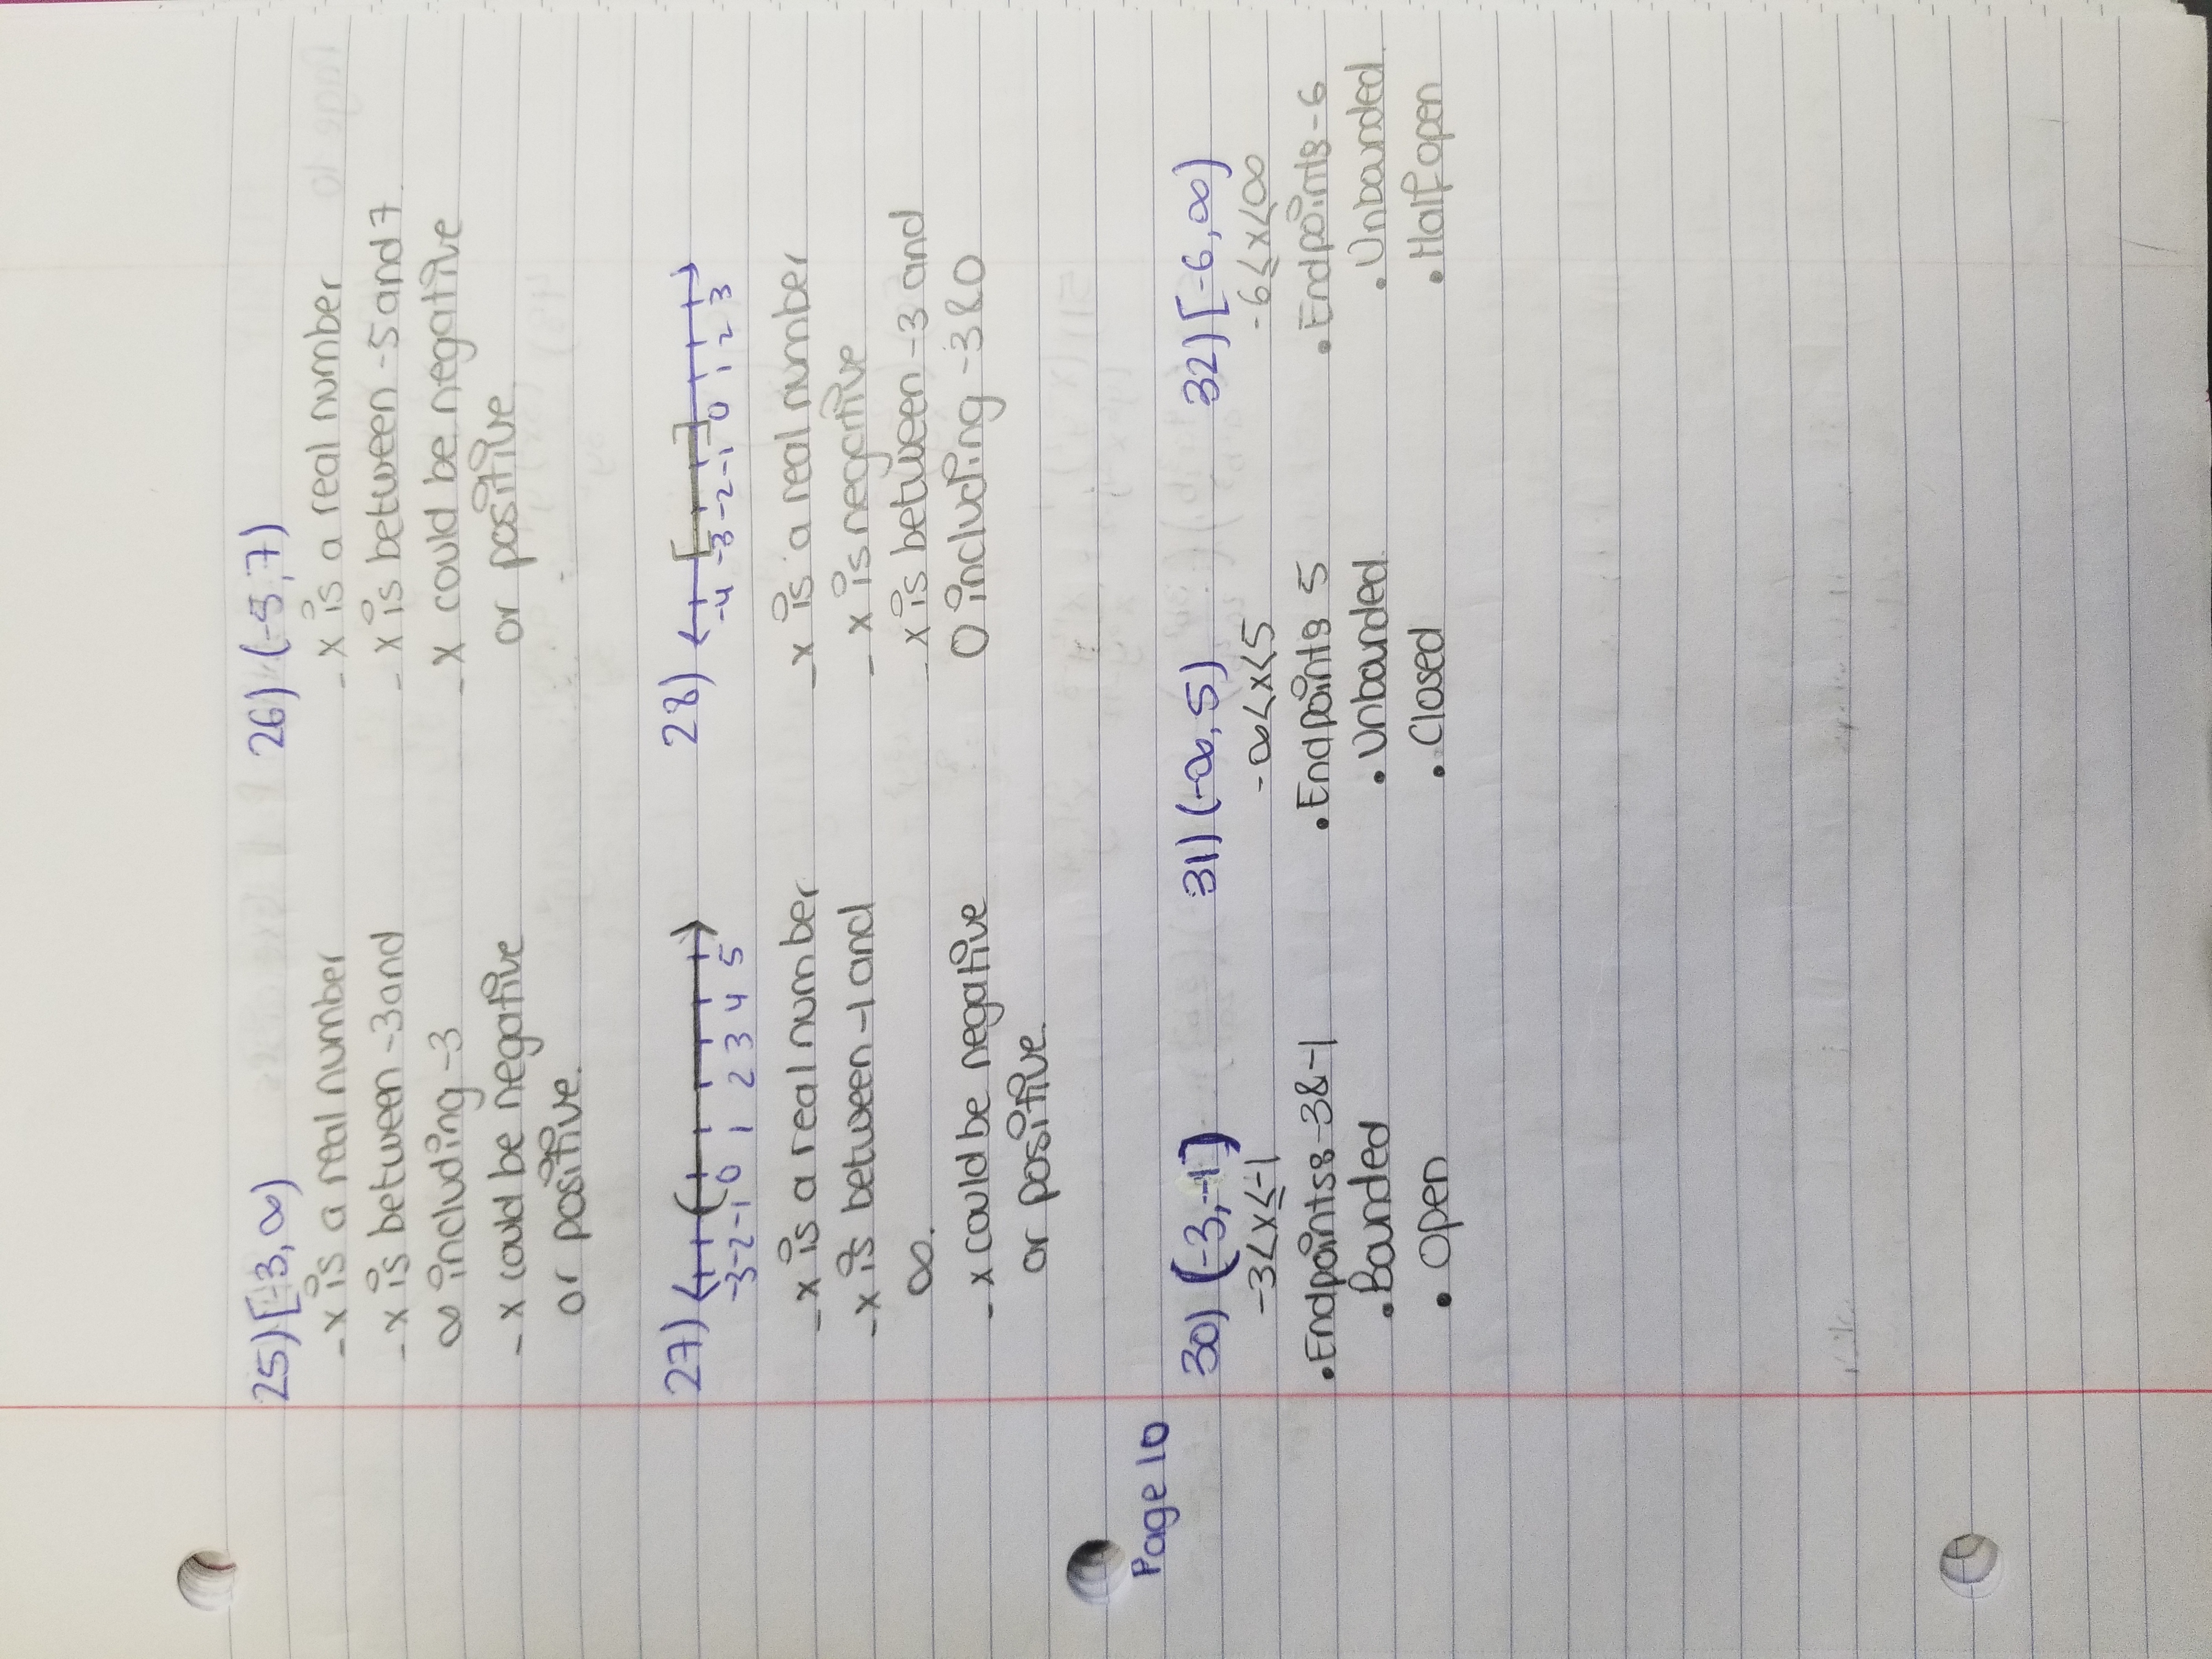 25) [-3, ∞)
- x is a real number
- x is between -3 and
∞ including -3
- x could be negative
or positive.
26) (-5, 7)
- x is a real number
- x is between -5 and 7.
- x could be negative
or positive.
27)
-3 -2 -1 0 1 2 3 4 5
- x is a real number
- x is between -1 and
∞.
- x could be negative
or positive.
28)
-4 -3 -2 -1 0 1 2 3
- x is a real number
- x is negative
- x is between -3 and
0 including -3 & 0
Page 10
30) (-3, -1]
-3 < x ≤ -1
• Endpoints -3 & -1
• Bounded
• Open
31) (-∞, 5)
-∞ < x < 5
• Endpoints 5
• Unbounded.
• Closed
32) [-6, ∞)
-6 ≤ x < ∞
• Endpoints -6
• Unbounded.
• Half open